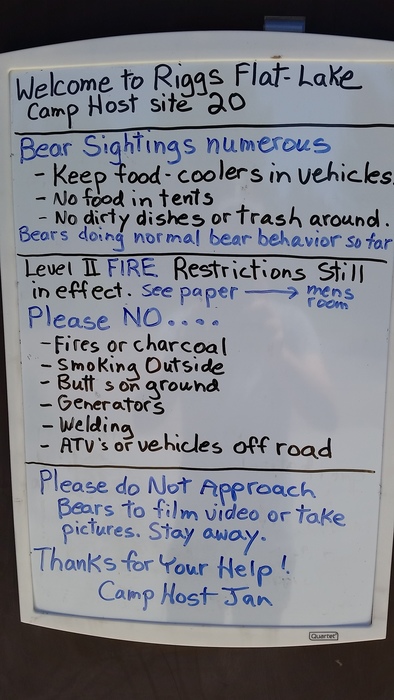 Welcome to Riggs Flat-Lake
Camp Host site 20
Bear Sightings numerous
- Keep food-coolers in vehicles
- No food in tents
- No dirty dishes or trash around.
Bears doing normal bear behavior so far
Level II FIRE Restrictions Still
in effect. see paper → mens
room
Please NO....
- Fires or charcoal
- Smoking Outside
- Butt s on ground
- Generators
- Welding
- ATV's or vehicles off road
Please do Not Approach
Bears to film video or take
pictures. Stay away.
Thanks for Your Help!
Camp Host Jan
Quartet